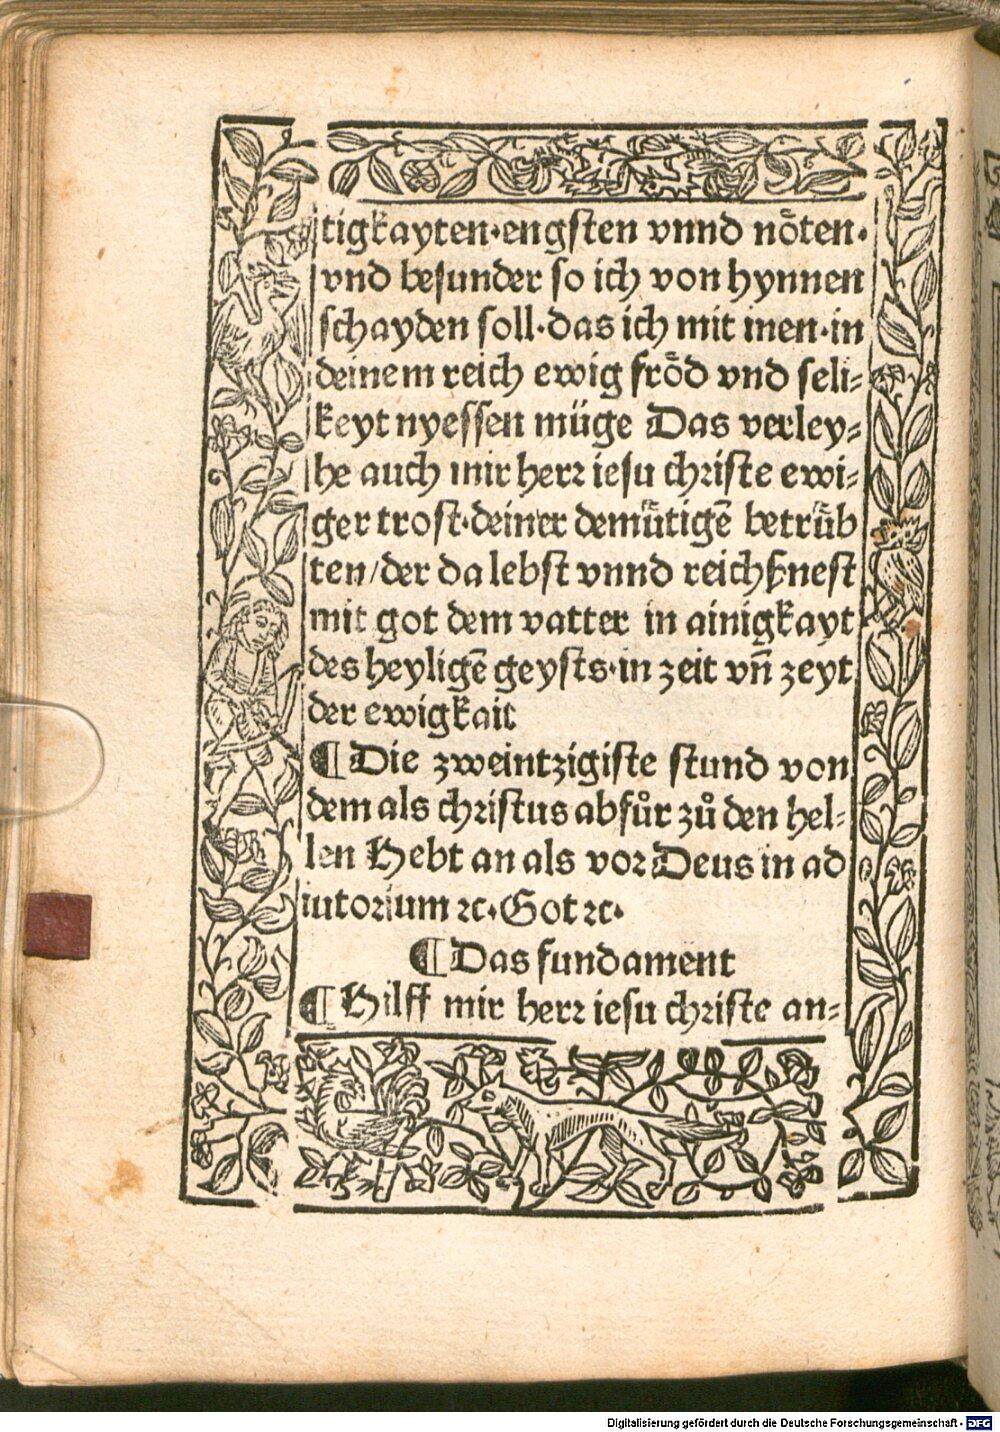 tigkayten·engsten vnnd nöten·
vnd besunder so ich von hynnen
schayden soll·das ich mit inen·in
deinem reich ewig fröd vnd seli⸗
keyt nyessen müge Das verley⸗
he auch mir herr iesu christe ewi⸗
ger trost·deiner demütigē betrüb
ten/der da lebst vnnd reichßnest
mit got dem vatter in ainigkayt
des heyligē geysts·in zeit vn̄ zeyt
der ewigkait
¶Die zweintzigiste stund von
dem als christus abfůr zů den hel⸗
len Hebt an als vor Deus in ad
iutorium ⁊c·Got ⁊c·
¶Das fundament
¶Hilff mir herr iesu christe an⸗
Digitalisierung gefördert durch die Deutsche Forschungsgemeinschaft - DFG